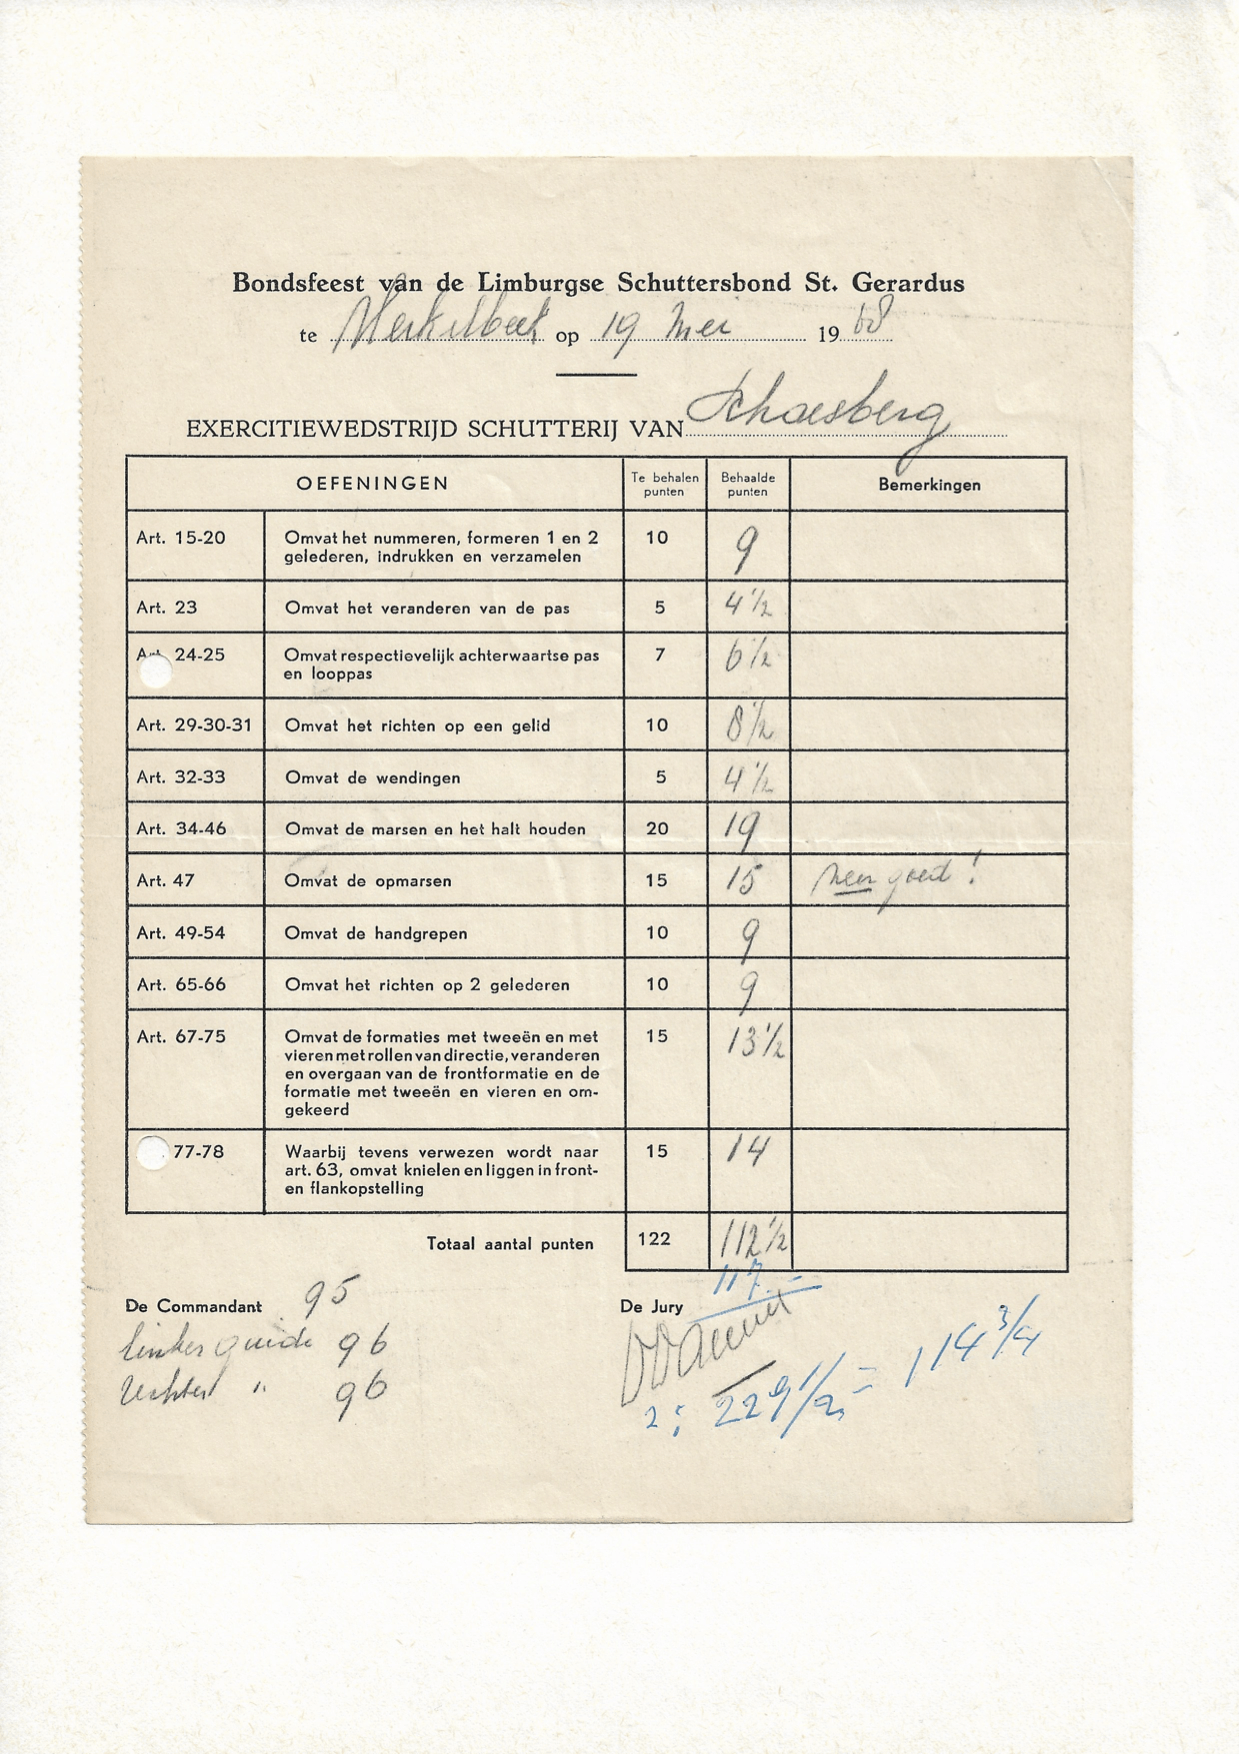 Bondsfeest van de Limburgse Schuttersbond St. Gerardus
te Merkelbeek op 19 Mei 1968
EXERCITIEWEDSTRIJD SCHUTTERIJ VAN Schaesberg
OEFENINGEN Te behalen punten Behaalde punten Bemerkingen
Art. 15-20 Omvat het nummeren, formeren 1 en 2 10 9
gelederen, indrukken en verzamelen
Art. 23 Omvat het veranderen van de pas 5 4 1/2
Art. 24-25 Omvat respectievelijk achterwaartse pas 7 6 1/2
en looppas
Art. 29-30-31 Omvat het richten op een gelid 10 8 1/2
Art. 32-33 Omvat de wendingen 5 4 1/2
Art. 34-46 Omvat de marsen en het halt houden 20 19
Art. 47 Omvat de opmarsen 15 15 zeer goed !
Art. 49-54 Omvat de handgrepen 10 9
Art. 65-66 Omvat het richten op 2 gelederen 10 9
Art. 67-75 Omvat de formaties met tweeën en met 15 13 1/2
vieren met rollen van directie, veranderen
en overgaan van de frontformatie en de
formatie met tweeën en vieren en om-
gekeerd
77-78 Waarbij tevens verwezen wordt naar 15 14
art. 63, omvat knielen en liggen in front-
en flankopstelling
Totaal aantal punten 122 112 1/2
117 =
De Commandant 95 De Jury
linker guide 96
rechter " 96
2 : 229 1/2 = 114 3/4